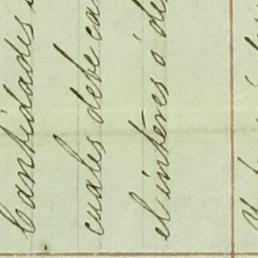 Cantidades
cuales debe ca
el interes o de